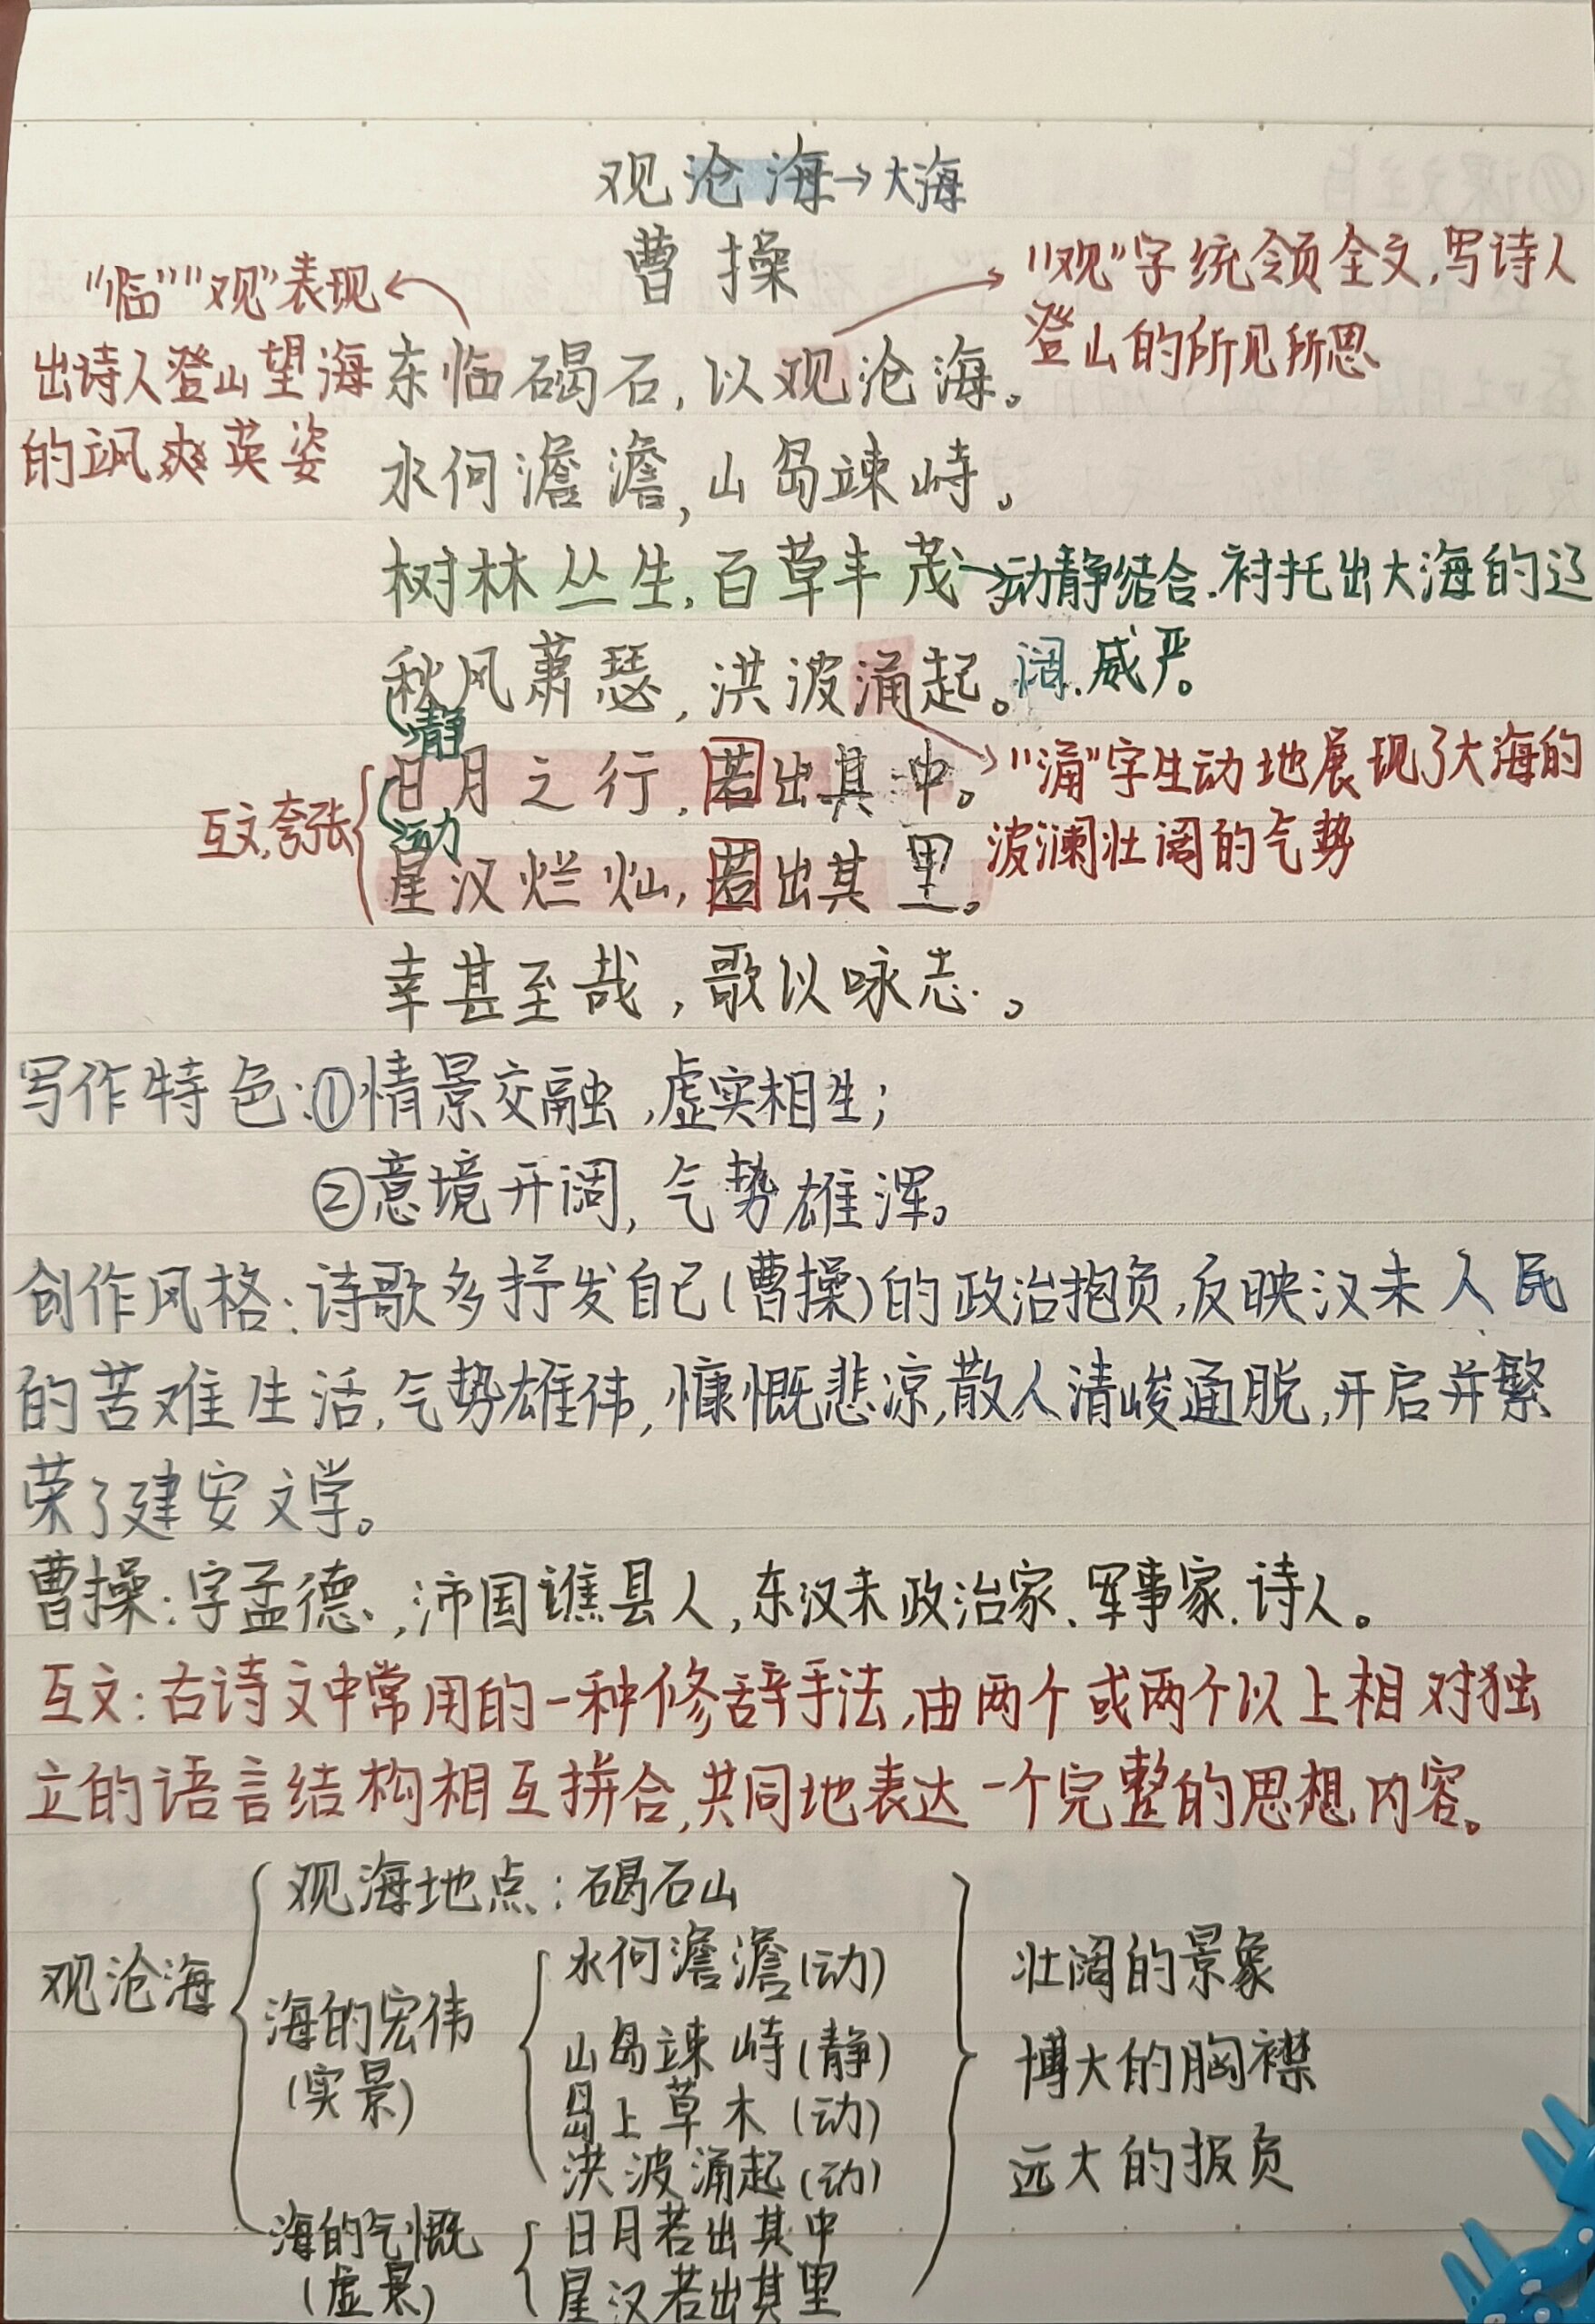 观沧海→大海
曹操
“临”“观”表现
出诗人登山望海
的飒爽英姿
“观”字统领全文,写诗人
登山的所见所思
东临碣石,以观沧海。
水何澹澹,山岛竦峙。
树林丛生,百草丰茂→动静结合.衬托出大海的辽
阔.威严。
秋风萧瑟,洪波涌起。
静
日月之行,若出其中。
“涌”字生动地展现了大海的
波澜壮阔的气势
互文.夸张
动
星汉烂灿,若出其里。
幸甚至哉,歌以咏志.。
写作特色:①情景交融,虚实相生;
②意境开阔,气势雄浑。
创作风格:诗歌多抒发自己(曹操)的政治抱负,反映汉末人民
的苦难生活,气势雄伟,慷慨悲凉,散人清峻通脱,开启并繁
荣了建安文学。
曹操:字孟德,沛国谯县人,东汉末政治家、军事家.诗人。
互文:古诗文中常用的一种修辞手法,由两个或两个以上相对独
立的语言结构相互拼合,共同地表达一个完整的思想内容。
观沧海
观海地点:碣石山
海的宏伟
(实景)
水何澹澹(动)
山岛竦峙(静)
岛上草木(动)
洪波涌起(动)
海的气慨
(虚景)
日月若出其中
星汉若出其里
壮阔的景象
博大的胸襟
远大的报负